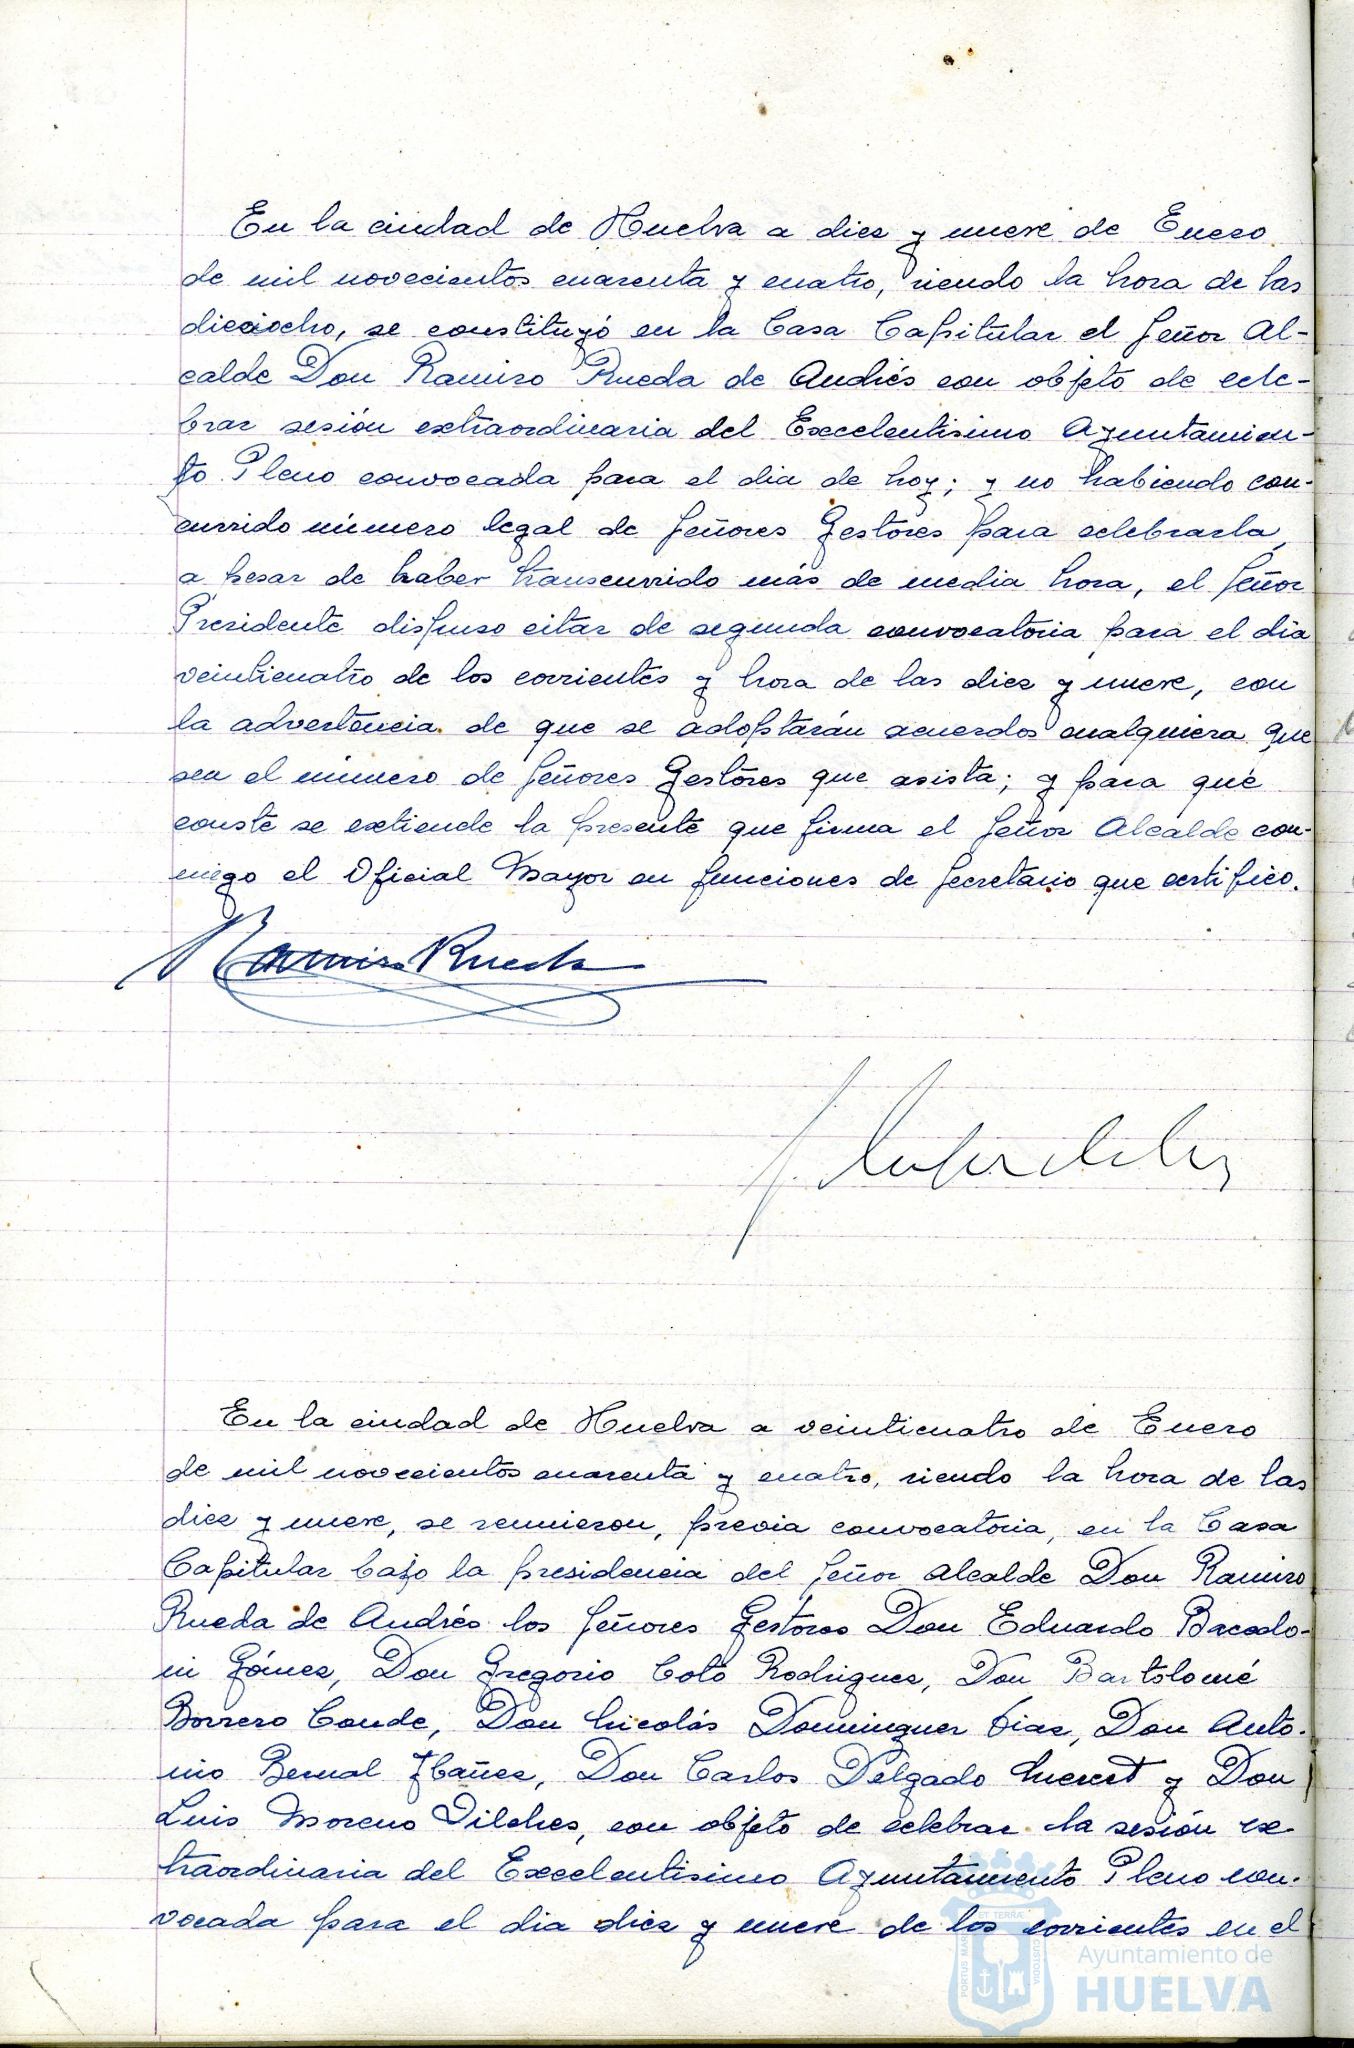 En la ciudad de Huelva a diez y nueve de Enero
de mil novecientos cuarenta y cuatro, siendo la hora de las
dieciocho, se constituyó en la Casa Capitular el Señor Al-
calde Don Ramiro Rueda de Andrés con objeto de cele-
brar sesión extraordinaria del Excelentisimo Ayuntamien-
to Pleno convocada para el dia de hoy; y no habiendo con-
currido número legal de Señores Gestores para celebrarla,
a pesar de haber transcurrido más de media hora, el Señor
Presidente dispuso citar de segunda convocatoria para el dia
veinticuatro de los corrientes y hora de las diez y nueve, con
la advertencia de que se adoptarán acuerdos cualquiera que
sea el número de Señores Gestores que asista; y para que
conste se extiende la presente que firma el Señor Alcalde con-
migo el Oficial Mayor en funciones de Secretario que certifico.
Ramiro Rueda
En la ciudad de Huelva a veinticuatro de Enero
de mil novecientos cuarenta y cuatro, siendo la hora de las
diez y nueve, se reunieron, previa convocatoria, en la Casa
Capitular bajo la presidencia del Señor Alcalde Don Ramiro
Rueda de Andrés los Señores Gestores Don Eduardo Bacedo-
ni Gómez, Don Gregorio Coto Rodriguez, Don Bartolomé
Borrero Conde, Don Nicolás Dominguez Diaz, Don Anto-
nio Bernal Ybañez, Don Carlos Delgado y Don
Luis Moreno Vilches, con objeto de celebrar la sesión ex-
traordinaria del Excelentisimo Ayuntamiento Pleno con-
vocada para el dia diez y nueve de los corrientes en el
PORTUS MARIS ET TERRÆ CUSTODIA
Ayuntamiento de
HUELVA